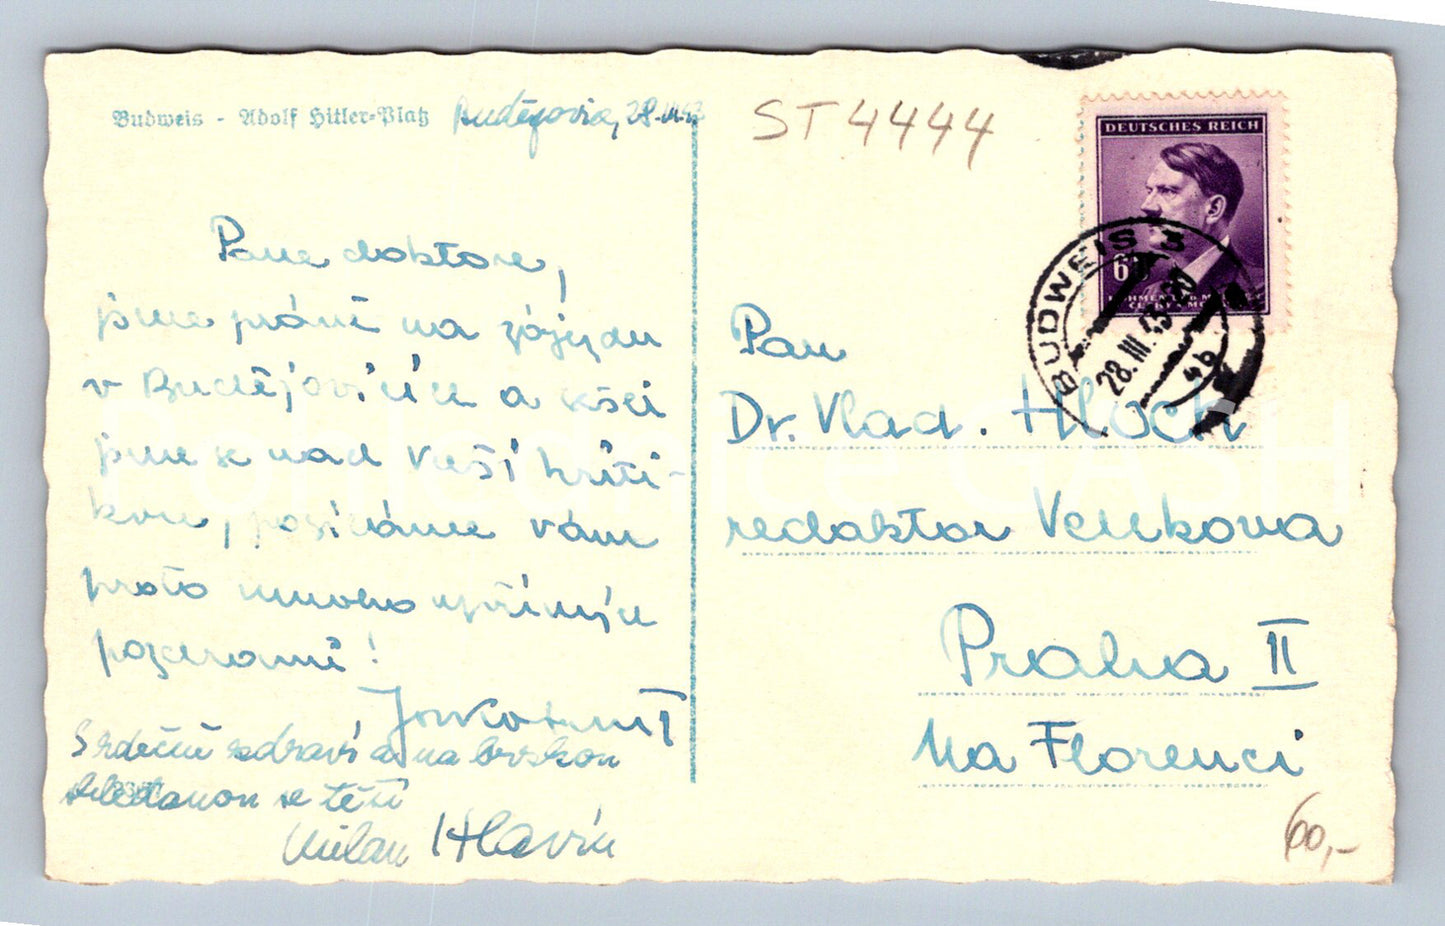 Budweis - Adolf Hitler-Platz
Budějovice, 28.III.43
ST 4444
DEUTSCHES REICH
60
BÖHMEN UND MÄHREN
ČECHY A MORAVA
BUDWEIS 3
28.III.43
4b
Pane doktore,
jsme právě na zájezdu
v Budějovicích a
jsme se nad Vaší kriti-
kou, posíláme vám
proto mnoho upřímných
pozdravů!
Srdečně zdraví a na brzkou
shledanou se těší
Milan Hlavín
Pan
Dr. Vlad. Hloch
redaktor Venkova
Praha II
Na Florenci
60,-
Pohlednice CASH